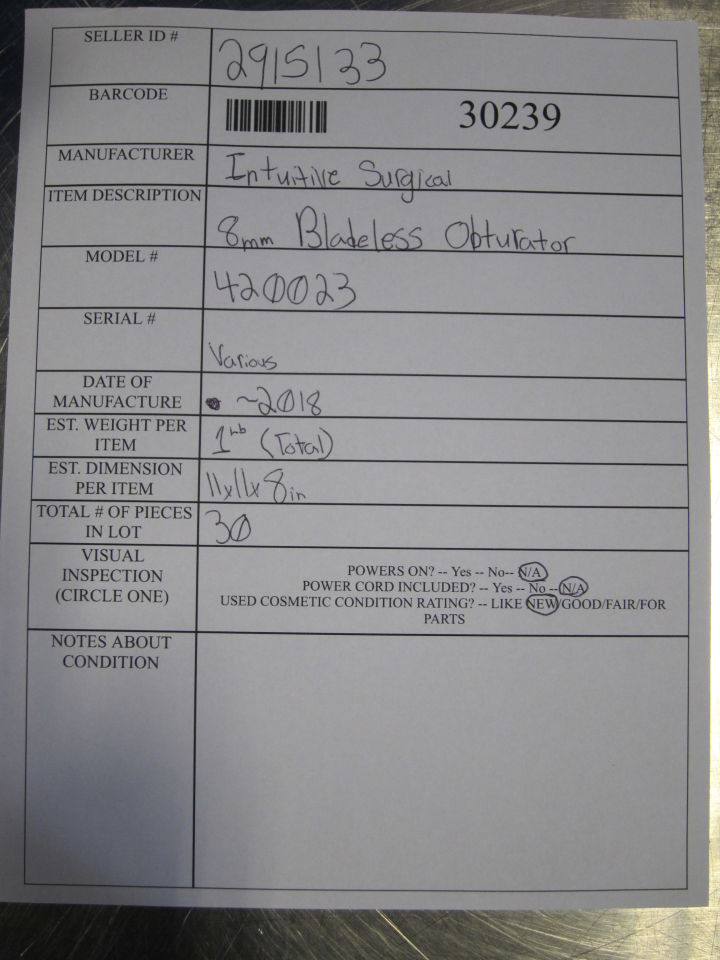 SELLER ID #
2915133
BARCODE
30239
MANUFACTURER
Intuitive Surgical
ITEM DESCRIPTION
8mm Bladeless Obturator
MODEL #
420023
SERIAL #
Various
DATE OF
MANUFACTURE
~2018
EST. WEIGHT PER
ITEM
1 (Total)
EST. DIMENSION
PER ITEM
11x11x8in
TOTAL # OF PIECES
IN LOT
30
VISUAL
INSPECTION
(CIRCLE ONE)
POWERS ON? -- Yes -- No-- N/A
POWER CORD INCLUDED? -- Yes -- No -- N/A
USED COSMETIC CONDITION RATING? -- LIKE NEW/GOOD/FAIR/FOR
PARTS
NOTES ABOUT
CONDITION